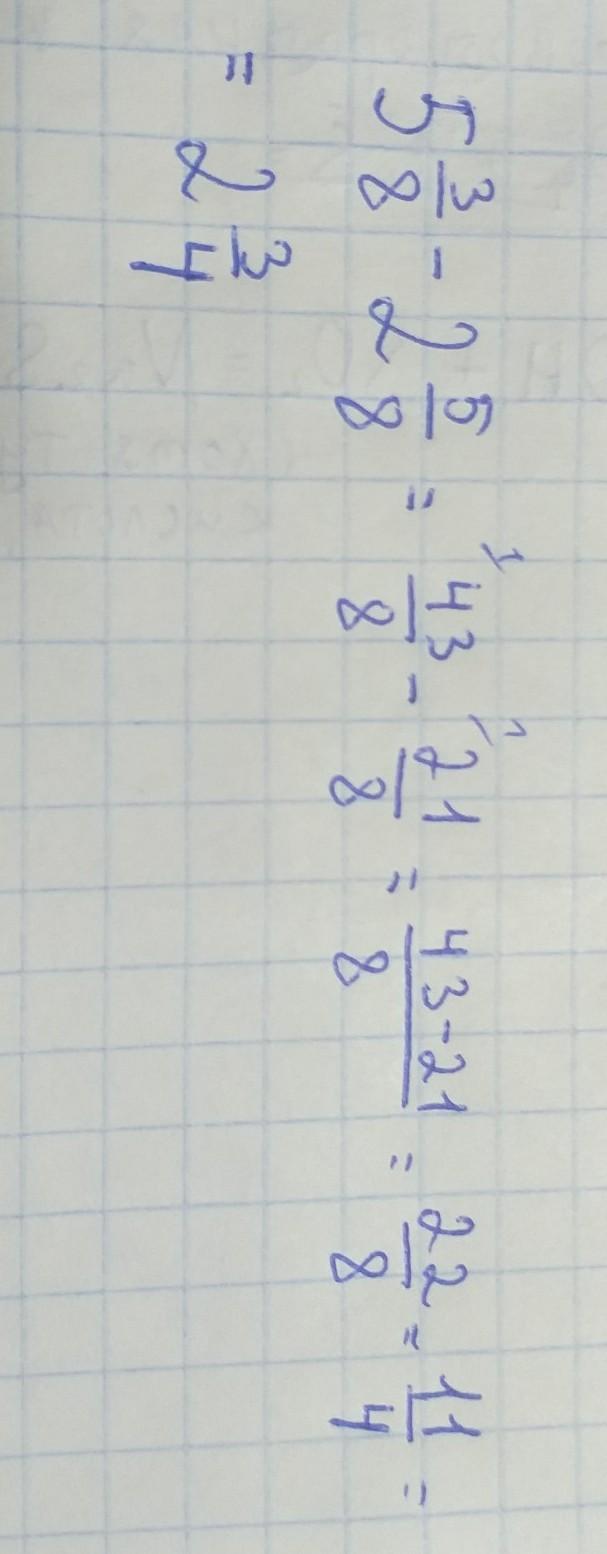 5 3/8 - 2 5/8 = 43/8 ¹ - 21/8 ¹ = 43-21/8 = 22/8 = 11/4 =
= 2 3/4